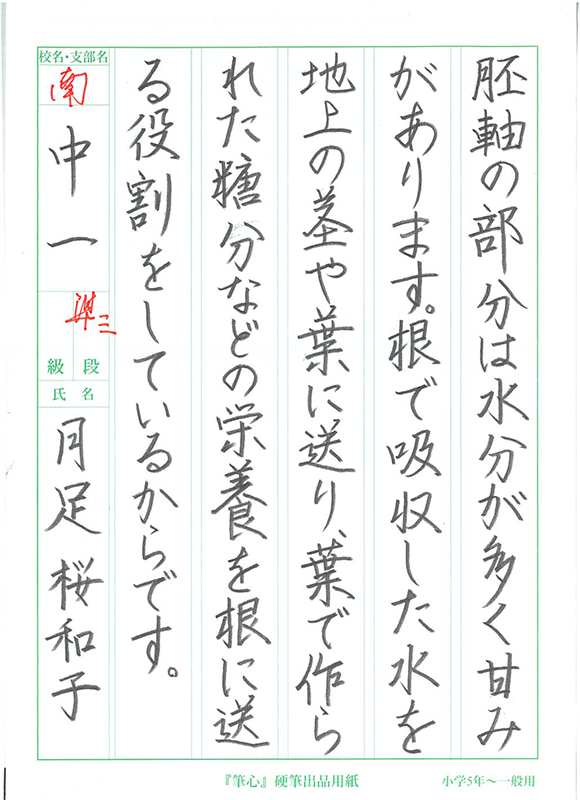 胚軸の部分は水分が多く甘み
があります。根で吸収した水を
地上の茎や葉に送り、葉で作ら
れた糖分などの栄養を根に送
る役割をしているからです。
校名・支部名
南
中一
準三
級 段
氏 名
月足 桜和子
『筆心』硬筆出品用紙
小学5年〜一般用